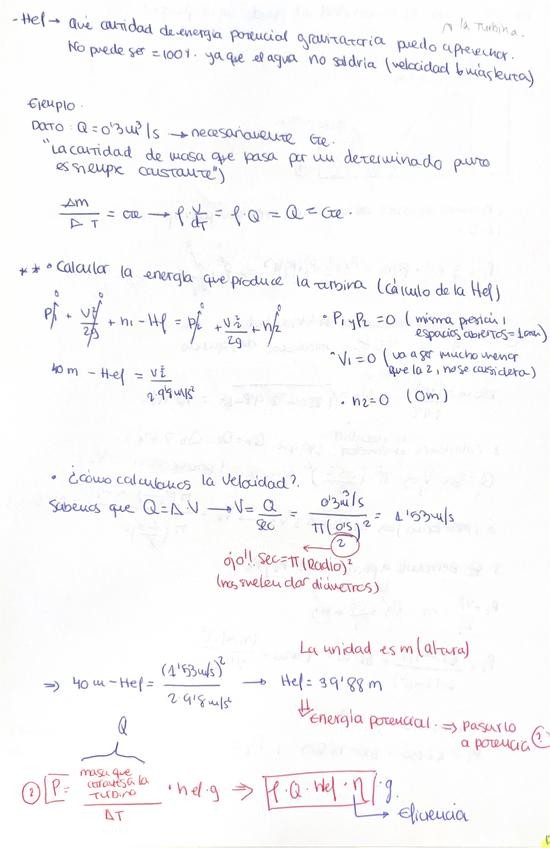 la turbina.
- Hef → Qué cantidad de energía potencial gravitatoria puedo aprovechar.
No puede ser = 100%. ya que el agua no saldría (velocidad 6 más lenta)
Ejemplo.
DATO: Q = 0'3 m³/s → necesariamente cte.
"La cantidad de masa que pasa por un determinado punto
es siempre constante")
Δm/ΔT = cte → ρ·V/dT = ρ·Q = Q = cte.
** • Calcular la energía que produce la turbina (cálculo de la Hef)
P₁/ρ + V₁²/2g + h₁ - Hf = P₂/ρ + V₂²/2g + h₂
• P₁ y P₂ = 0 (misma presión,
espacios abiertos = 1atm)
• V₁ = 0 (va a ser mucho menor
que la 2, no se considera)
40 m - Hef = V₂²/2·9'8 m/s²
• h₂ = 0 (0m)
• ¿cómo calculamos la velocidad?.
Sabemos que Q = A·V → V = Q/sec = 0'3 m³/s / π(0'5/2)² = 1'53 m/s
ójo!! sec = π(Radio)²
(nos suelen dar diámetros)
La unidad es m (altura)
⇒ 40 m - Hef = (1'53 m/s)²/2·9'8 m/s² → Hef = 39'88 m
⇓ Energía potencial. ⇒ pasarlo
a potencia ②
Q
② P = masa que atraviesa la turbina/ΔT · hef · g ⇒ ρ·Q·Hef·η·g.
→ Eficiencia